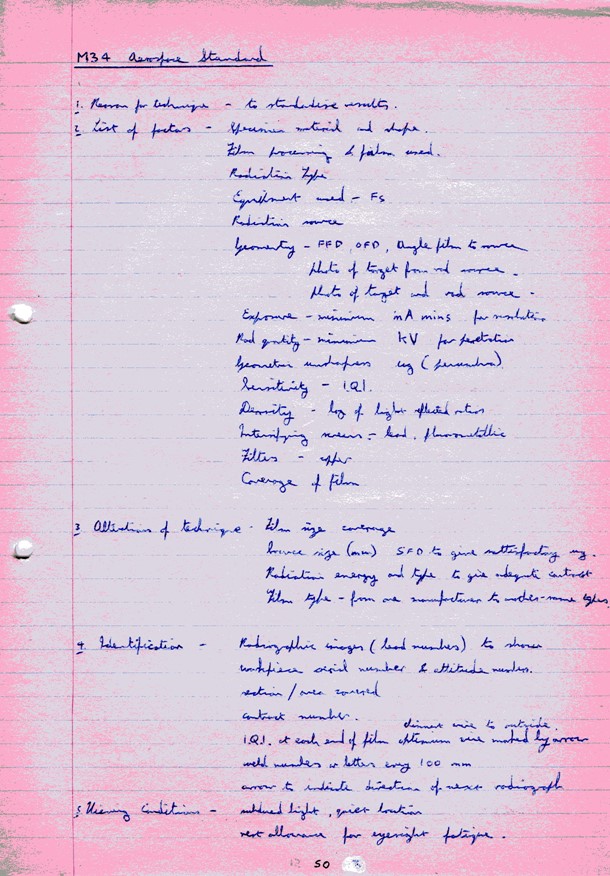 M34 Aerospace Standard
1. Reason for technique - to standardise results.
2. List of factors - Specimen material and shape.
Film processing & film used.
Radiation Type
Equipment used - Fs
Radiation source
Geometry - FFD, OFD, Angle film to source
photo of target from rad source.
photo of target and rad source.
Exposure - minimum mA mins for resolution
Rad quality - minimum kV for penetration
Geometric unsharpness ug (penumbra)
Sensitivity - I.Q.I.
Density - log of light reflected
Intensifying screens - lead, fluorometallic
Filters - copper
Coverage of film
3 Alterations of technique - Film size coverage
Source size (mm) SFD to give satisfactory ug.
Radiation energy and type to give adequate contrast
Film type - from one manufacturer to another - same types
4. Identification - Radiographic images (lead numbers) to show
workpiece serial number & attitude numbers.
section / area covered
contract number.
thinnest wire to outside
I.Q.I. at each end of film optimum wire marked by arrow
weld numbers or letters every 100 mm
arrow to indicate direction of next radiograph
5. Viewing Conditions - subdued light, quiet location
rest allowance for eyesight fatigue.
12 50